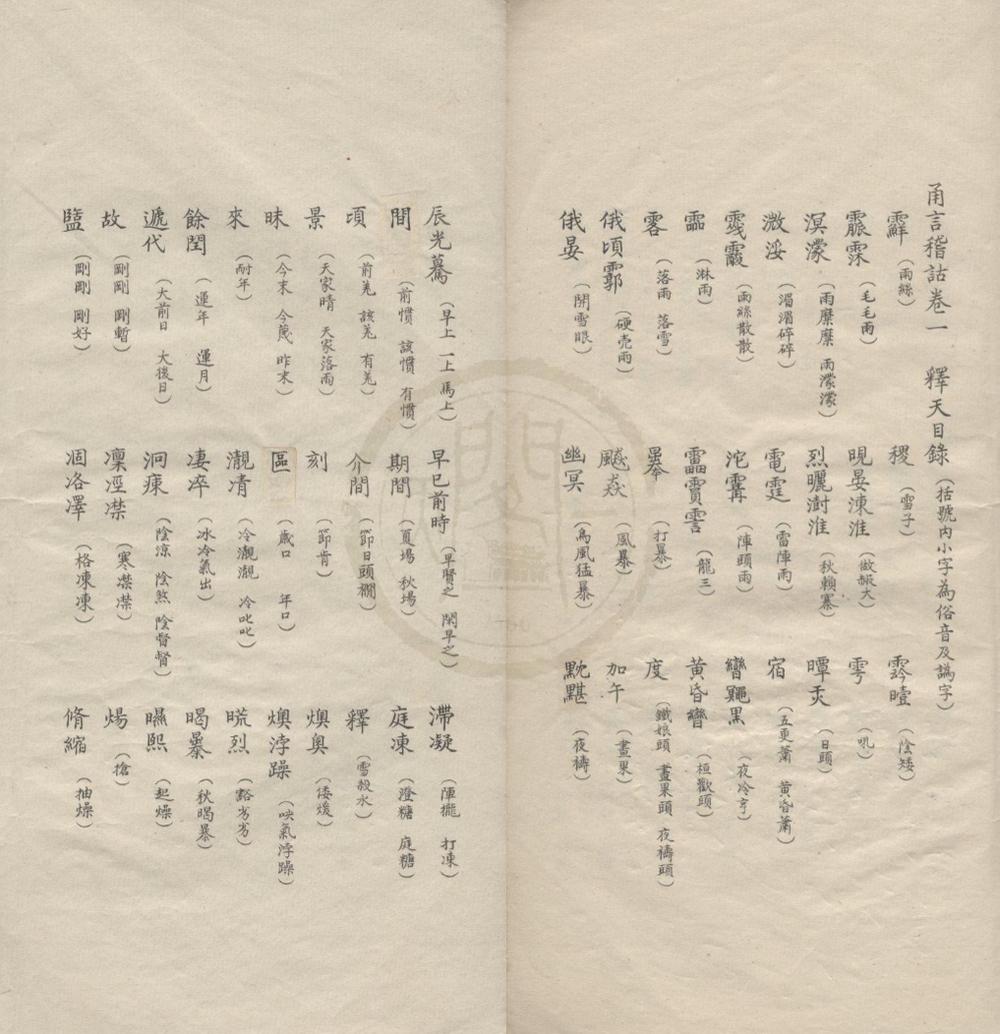 甬言稽詁卷一 釋天目錄（括號內小字為俗音及譌字）
䨘（雨絲） 稷（雪子） 霒曀（陰矮）
霢霂（毛毛雨） 晛晏涷淮（做綟大） 雩（吼）
溟濛（雨糜糜 雨濛濛） 烈曬澍淮（秋賴寡） 曋㶣（日頭）
溦浽（湄湄碎碎） 電霆（雷陣雨） 宿（五更蕭 黃昏蕭）
霰（雨絲散散） 沱霿（陣頭雨） 黑（夜冷亨）
霝（淋雨） 霣霅（龍三） 黃昏（桓歡頭）
零（落雨 落雪） （打暴） 度（鐵娘頭 晝果頭 夜禱頭）
俄頃霩（硬壳雨） 飈猋（風暴） 加午（晝果）
俄晏（開雪眼） 幽冥（烏風猛暴） 黕黮（夜禱）
辰光驀（早上 一上 馬上） 早已前時（早賢之 閑早之） 滯凝（陣攏 打凍）
間（前慣 該慣 有慣） 期間（夏場 秋場） 庭凍（澄糖 庭糖）
頃（前羌 該羌 有羌） 介間（節日頭櫊） 釋（雪殺水）
景（天家晴 天家落雨） 刻（節肯） 燠奧（倭煖）
昧（今末 今蔑 昨末） 區（歲口 年口） 燠浡躁（央氣浡躁）
來（耐年） 瀙凊（冷瀙瀙 冷叱叱） 晄烈（豁劣劣）
餘閏（運年 運月） 凄淬（冰冷氣出） 暍㬥（秋暍暴）
遞代（大前日 大後日） 泂㾕（陰涼 陰煞 陰督督） 㬤熙（起燥）
故（剛剛 剛暫） 凜淫凚（寒凚凚） 煬（搶）
盬（剛剛 剛好） 涸洛澤（格凍凍） 脩縮（抽燥）